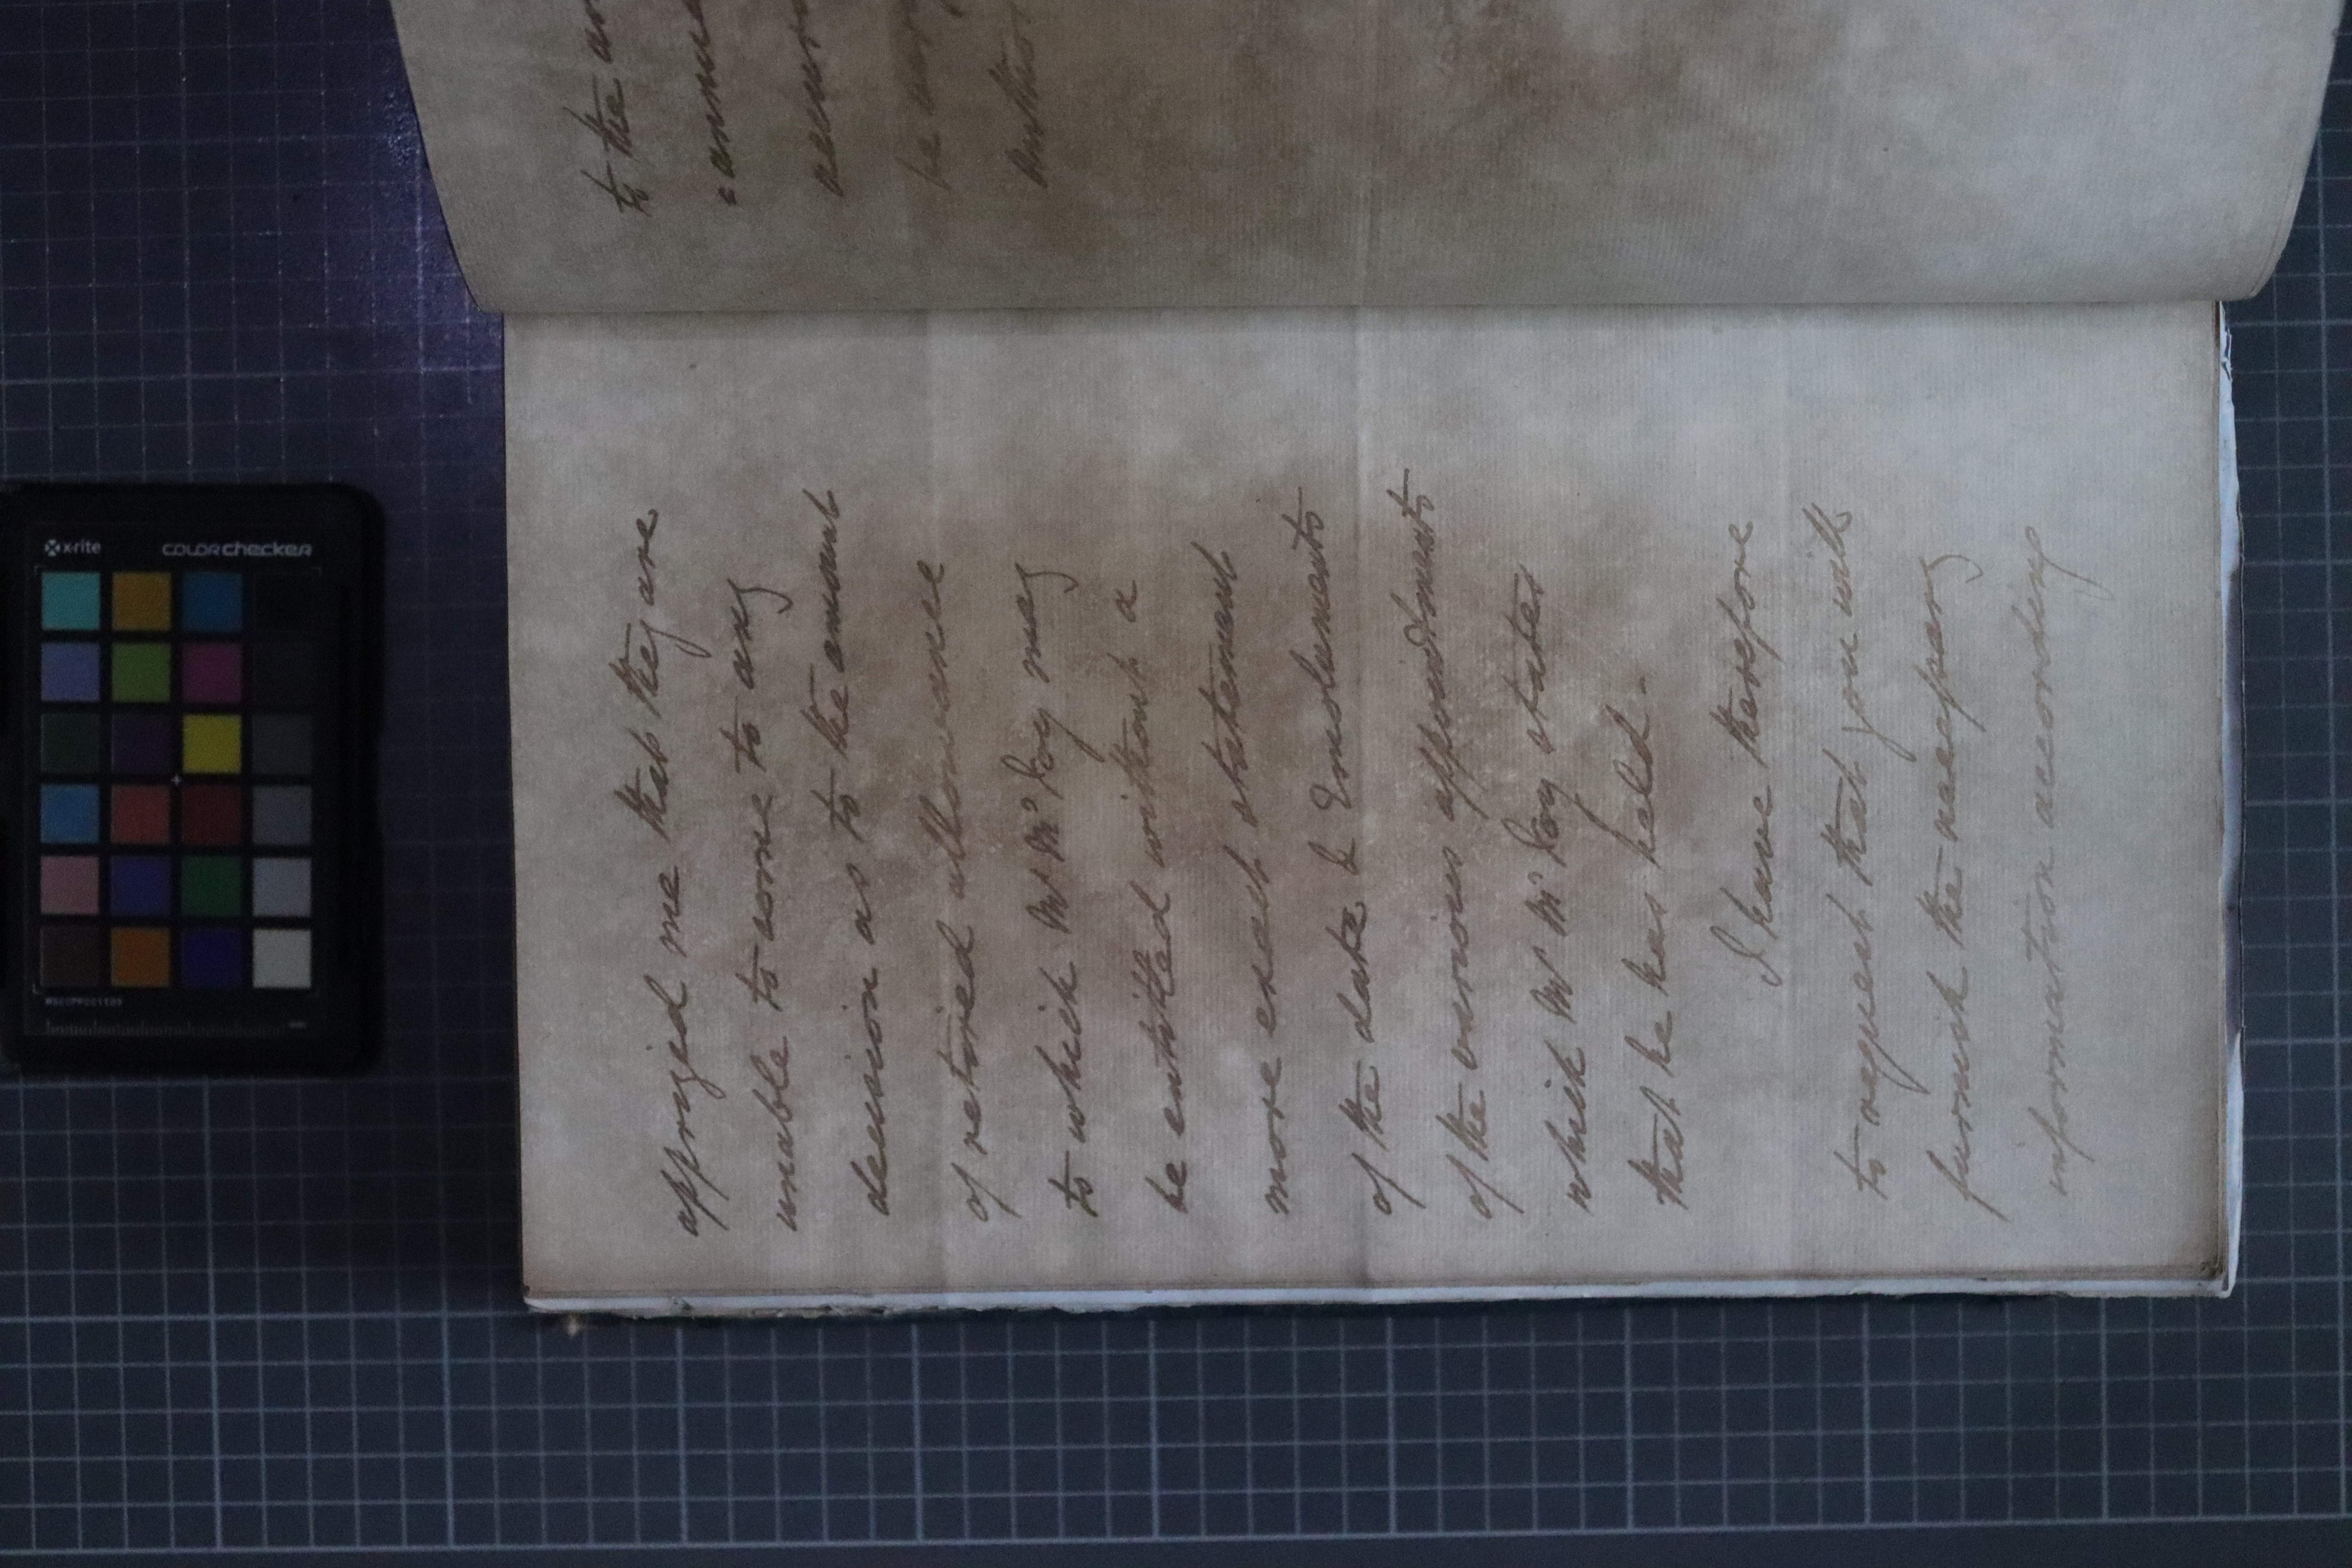 apprized me that they are
unable to come to any
decision as to the amount
of retired allowance
to which Mr McCoy may
be entitled without a
more exact statement
of the date & Emoluments
of the various appointments
which Mr McCoy states
that he has held -
I have therefore
to request that you will
furnish the necessary
information according
to the
x-rite
colorchecker